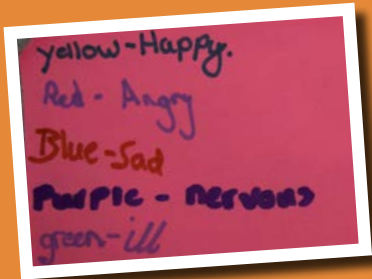 yellow-Happy.
Red - Angry
Blue-Sad
Purple - nervous
green-ill